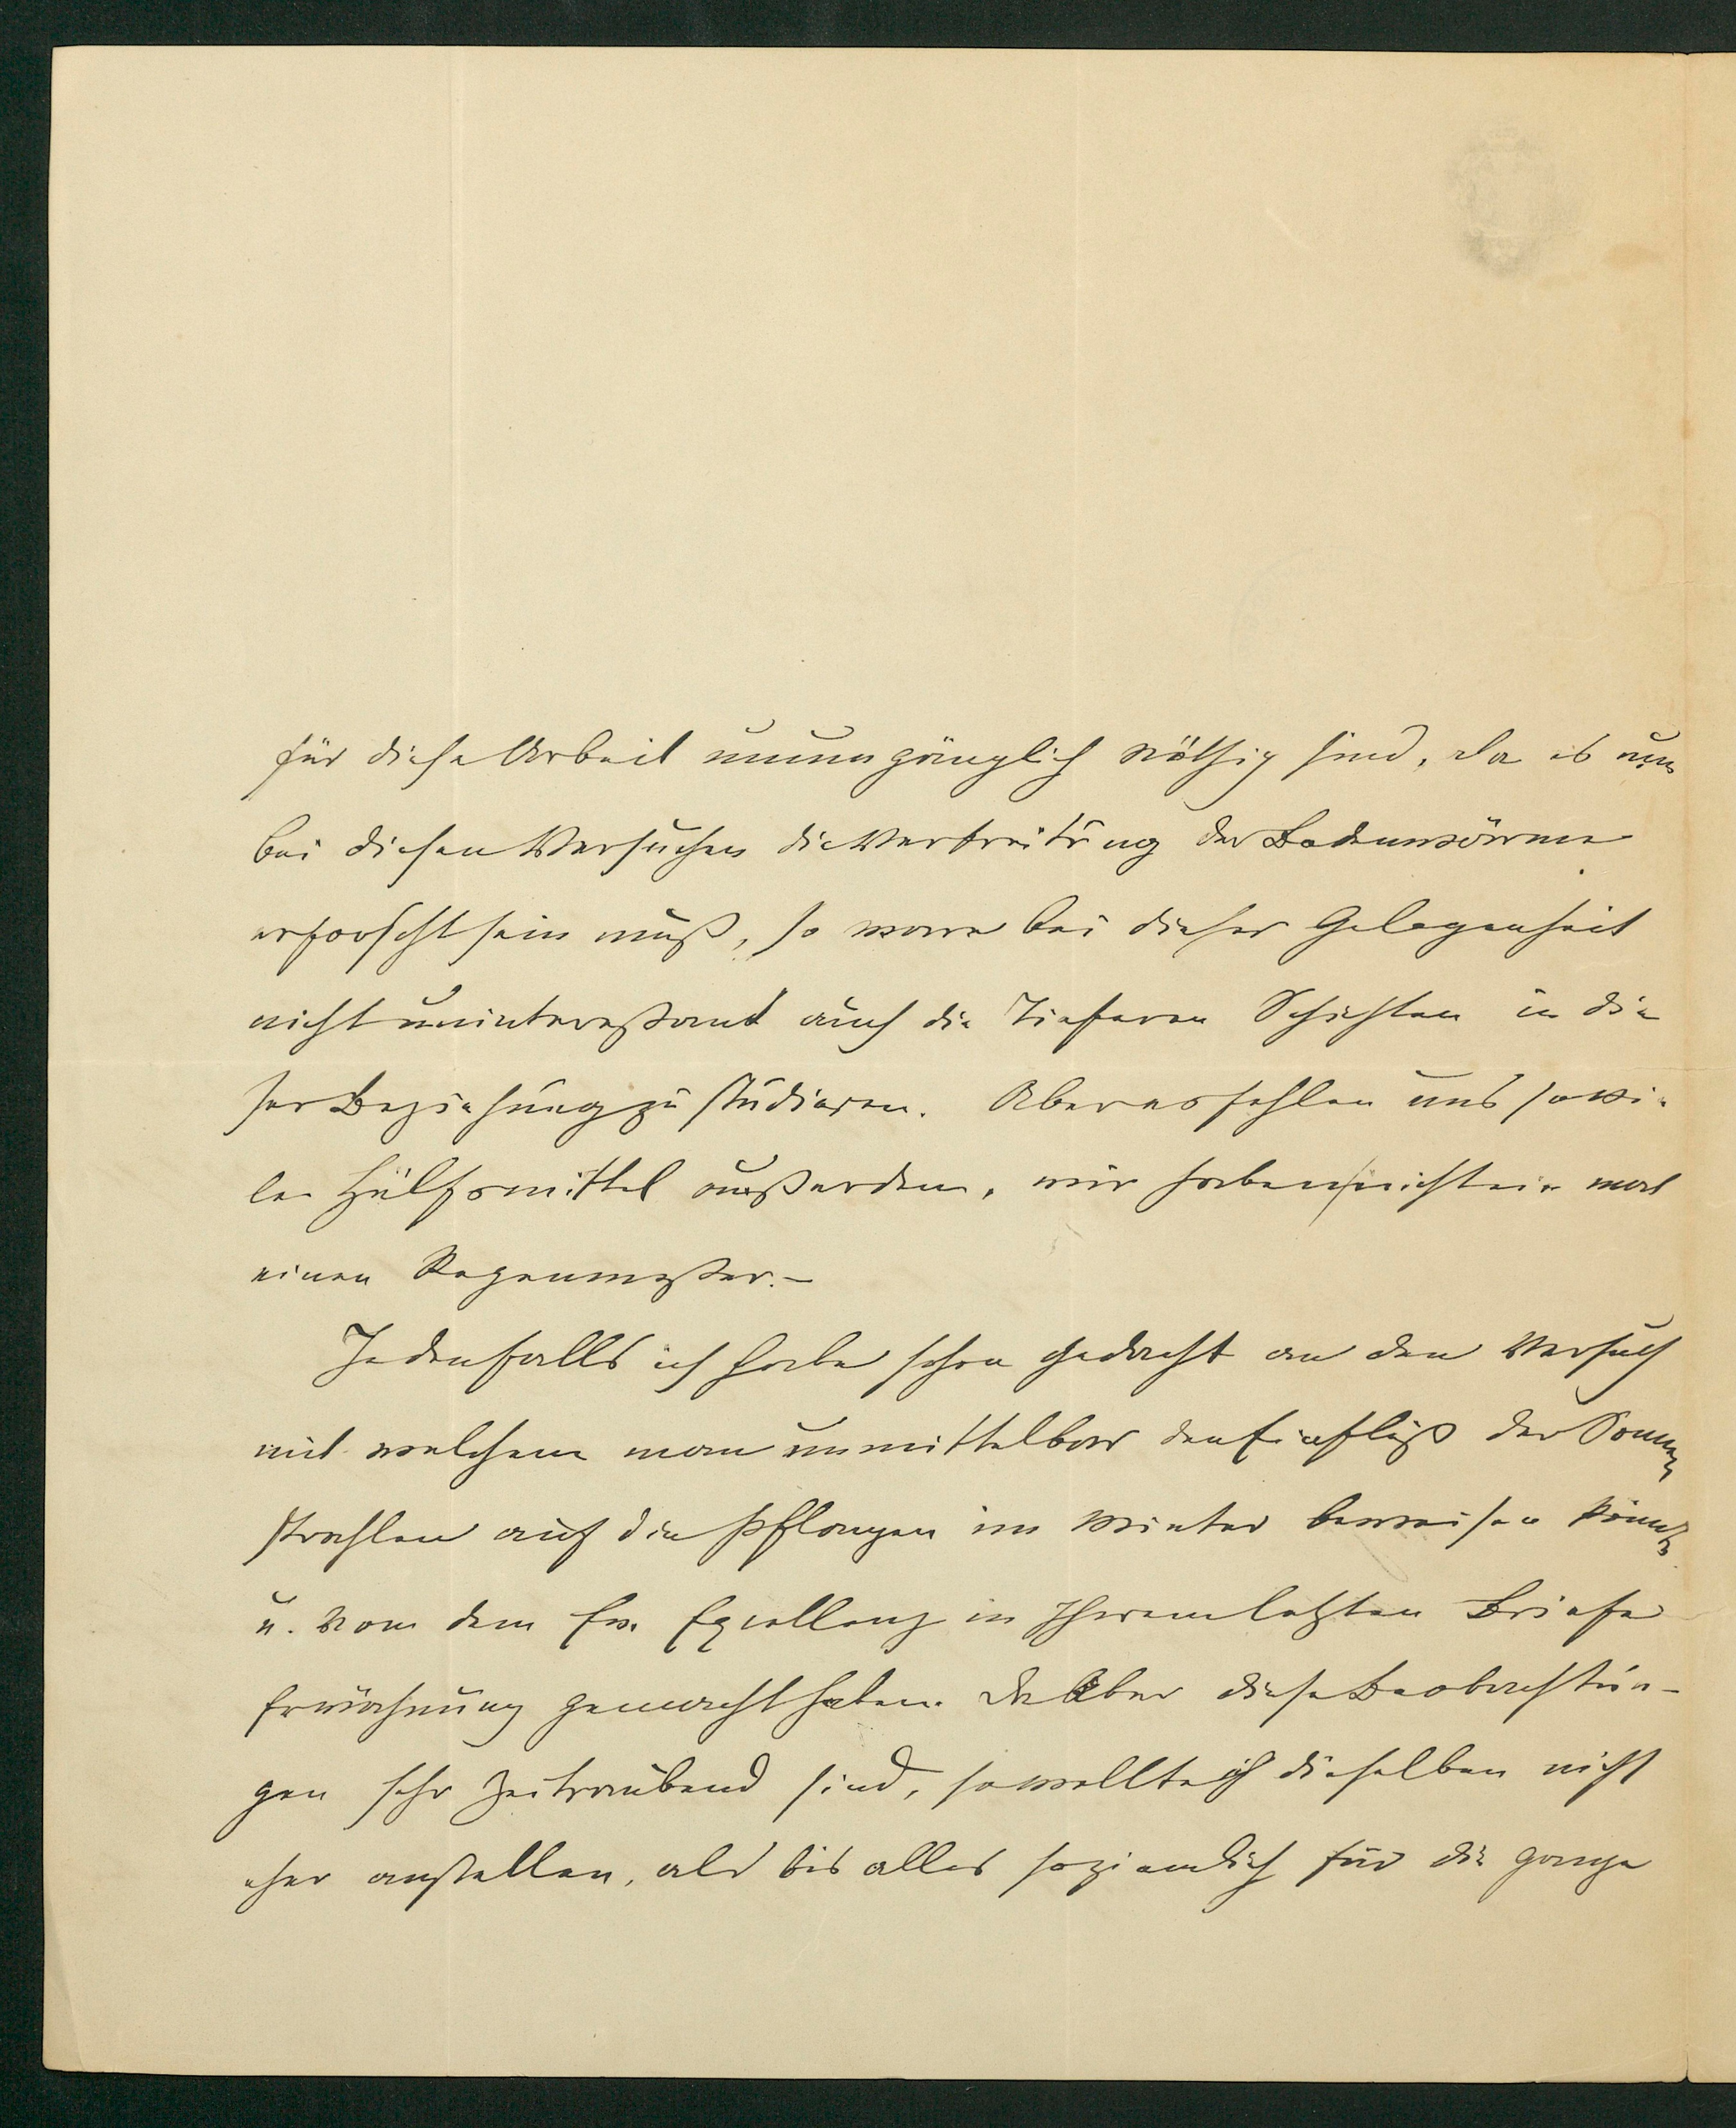 für diese Arbeit unumgänglich nöthig sind, da es nun
bei diesen Versuchen die Verbreitung der Bodenwärme
erforscht sein muß, so ware bei dieser Gelegenheit
nicht uninteressant auch die Tieferen Schichten in die
ser Beziehung zu studieren. Aber es fehlen uns so vi-
le Hülfsmittel außerdem, wir haben nicht ein mal
einen Regenmesser.-
Jedenfalls ich habe schon gedacht an den Versuch
mit welchem man unmittelbar den Einfluß der Sonnen
strahlen auf die Pflanzen im Winter beweisen könnte
u. von dem Ew. Excellenz in Ihrem letzten Briefe
Erwähnung gemacht haben. Da aber diese Beobachtun-
gen sehr zeitraubend sind, so wollte ich dieselben nicht
eher anstellen, als bis alles so ziemlich für die ganze